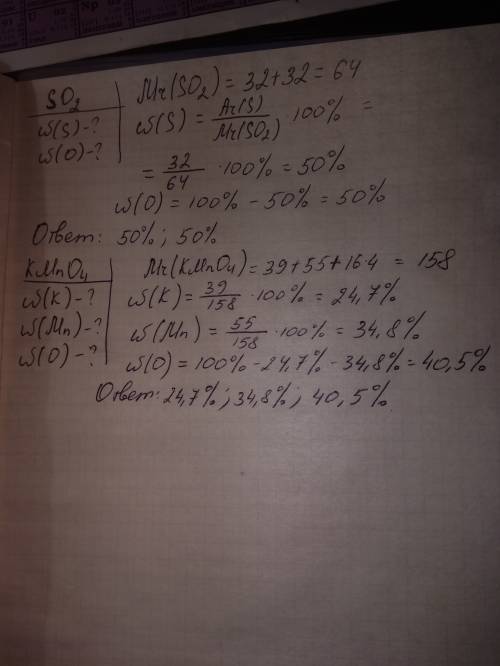 U 92 Np 93
SO₂
Mr(SO₂) = 32+32 = 64
ω(S)-?
ω(S) = Ar(S)/Mr(SO₂) · 100% =
ω(O)-?
= 32/64 · 100% = 50%
ω(O) = 100% - 50% = 50%
Ответ: 50%; 50%
KMnO₄
Mr(KMnO₄) = 39+55+16·4 = 158
ω(K)-?
ω(K) = 39/158 · 100% = 24,7%
ω(Mn)-?
ω(Mn) = 55/158 · 100% = 34,8%
ω(O)-?
ω(O) = 100% - 24,7% - 34,8% = 40,5%
Ответ: 24,7%; 34,8%; 40,5%